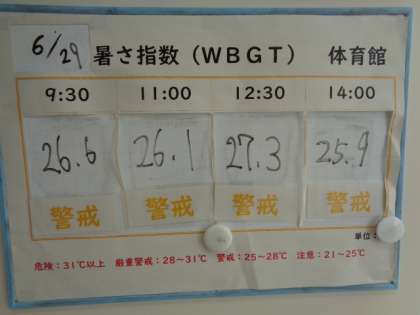 6/29 暑さ指数（ＷＢＧＴ） 体育館
9:30 11:00 12:30 14:00
26.6 26.1 27.3 25.9
警戒 警戒 警戒 警戒
単位：
危険：31℃以上 厳重警戒：28～31℃ 警戒：25～28℃ 注意：21～25℃